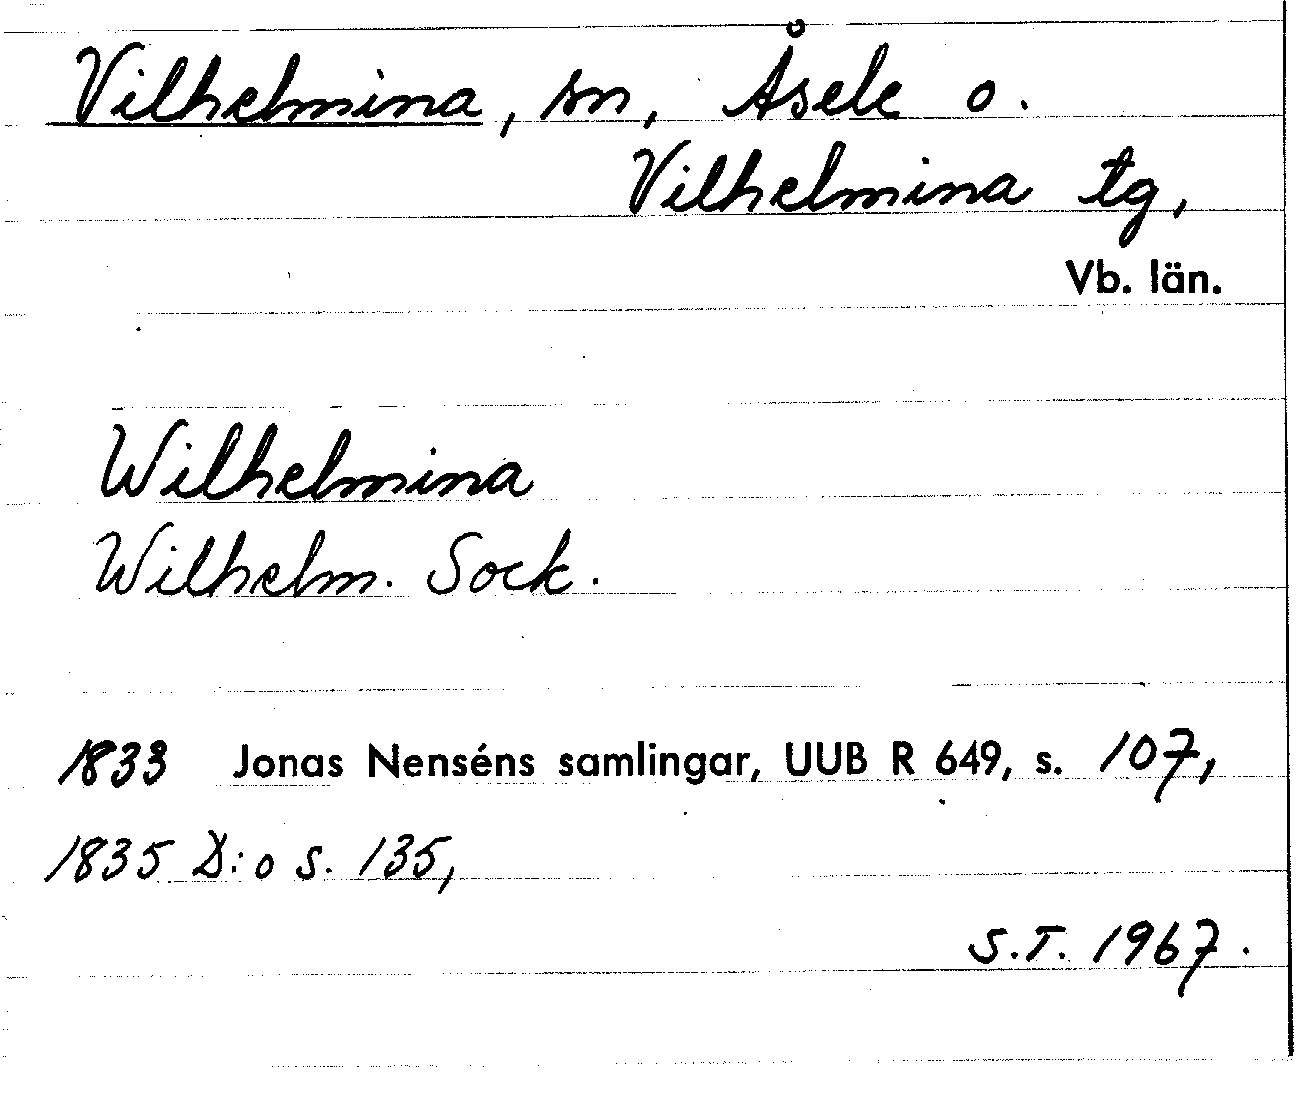 Vilhelmina, sn, Åsele o.
Vilhelmina tg,
Vb. län.
Wilhelmina
Wilhelm. Sock.
1833 Jonas Nenséns samlingar, UUB R 649, s. 107,
1835 D:o s. 135,
S.T. 1967.